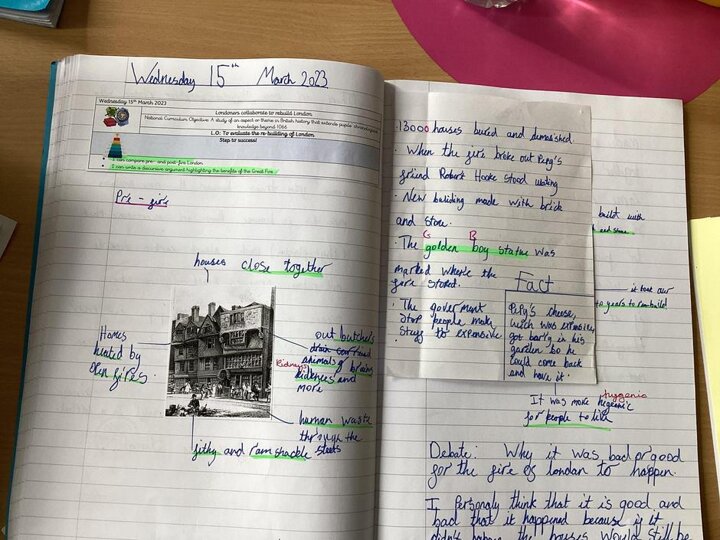 Wednesday 15th March 2023
Wednesday 15th March 2023
Londoners collaborate to rebuild London
National Curriculum Objective: A study of an aspect or theme in British history that extends pupils' chronological
knowledge beyond 1066
L.O: To evaluate the re-building of London
Steps to success!
I can compare pre- and post-fire London
I can write a discursive argument highlighting the benefits of the Great Fire
Pre - fire
houses close together
Homes
heated by
open fires.
out butcher's
drain
animals of brains
Kidneys
kidknees and
more
human waste
through the
streets
filthy and ramshackle
13000 houses bured and demolished
When the fire broke out Pepy's
friend Robert Hooke stood
New building made with brick
and stone.
G B
The golden boy statue was
marked where the
fire stoped.
The goverment
stop people make
stays to expensive
Fact
Pepy's cheese,
wich was expensive,
got barry in his
garden so he
could come back
and have it.
built with
and stone
it took our
to years to
hygenic
It was more hegienic
for people to live
Debate: Why it was bad or good
for the fire of london to happen.
I Personaly think that it is good and
bad that it happened because if it
didn't happen the houses would still be